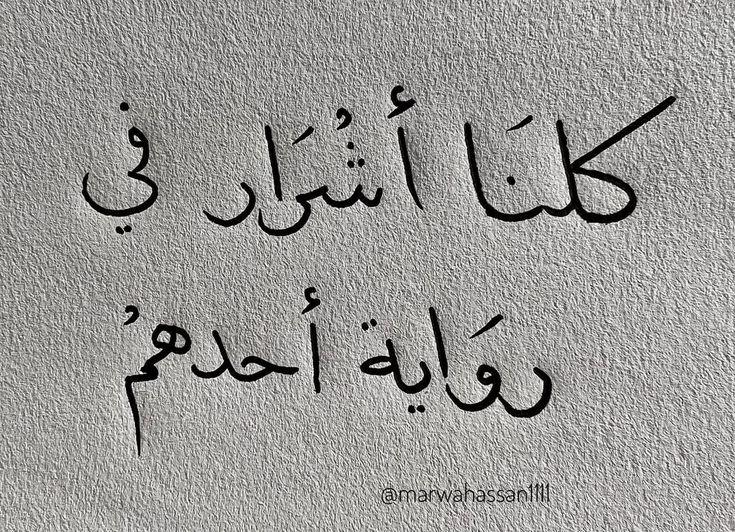 كلنَا أشُرَار في
روَاية أحدهمُ
@marwahassan1111